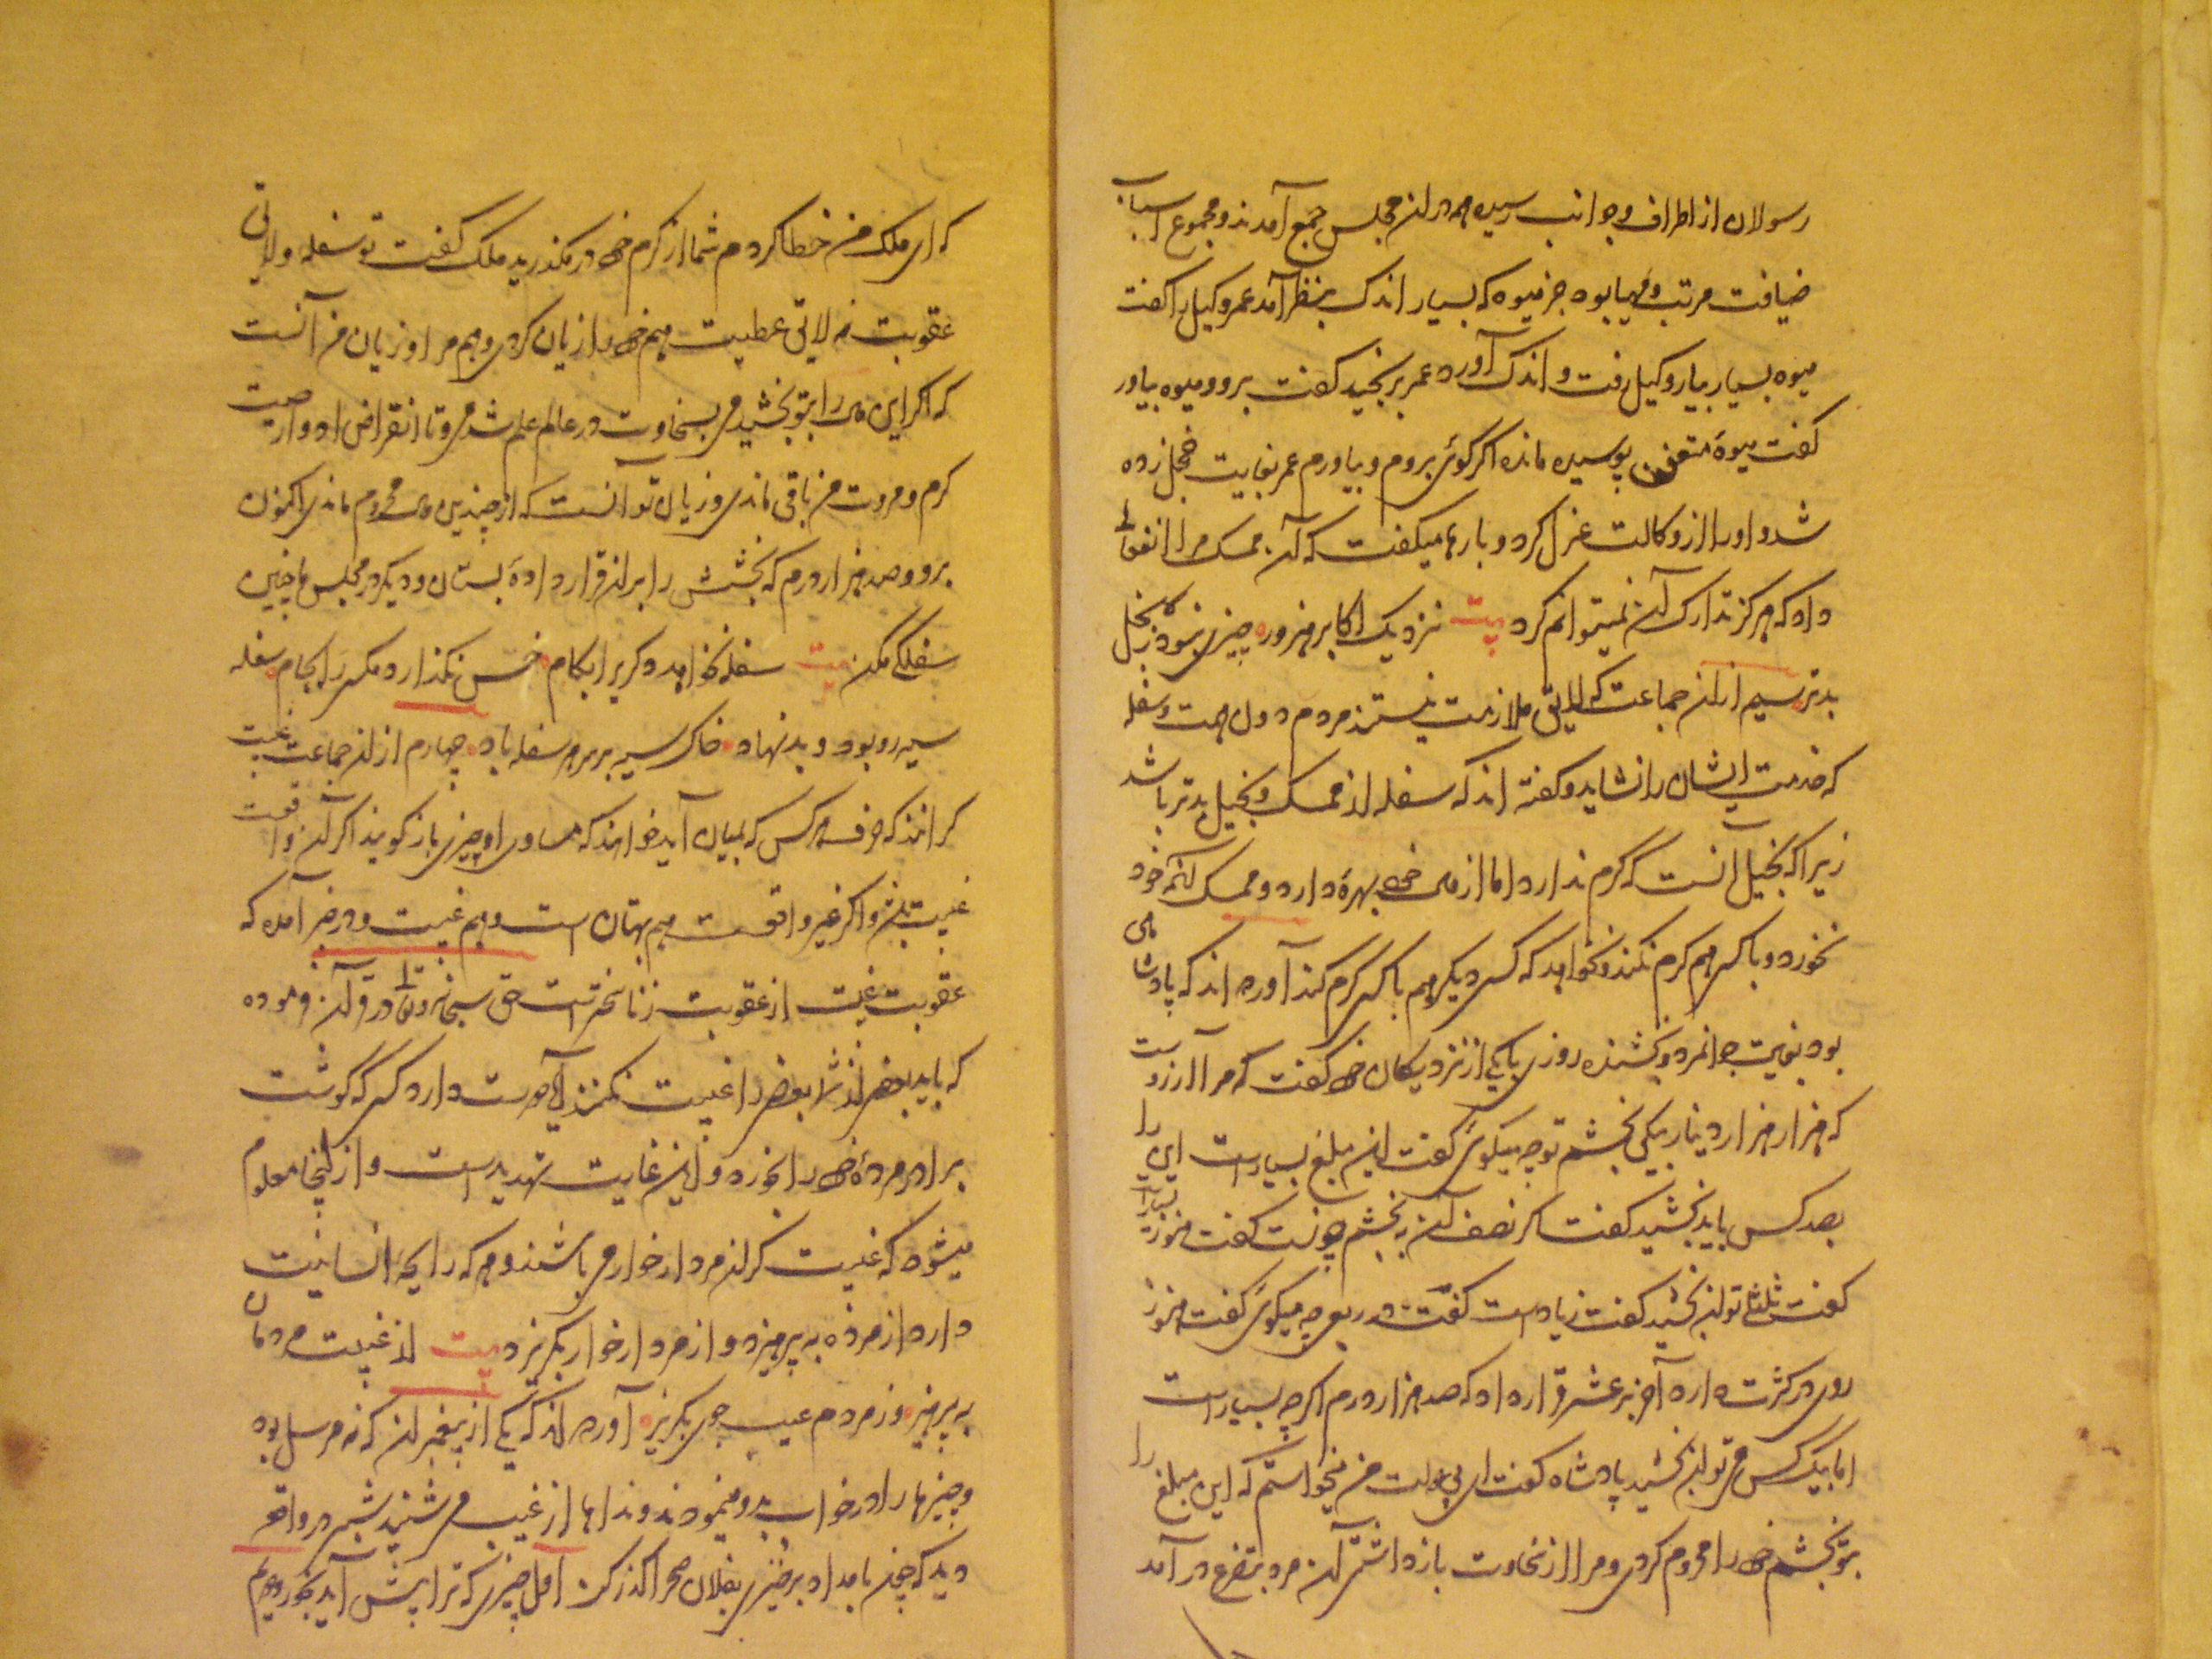 رسولان از اطراف و جوانب رسیده همه در ان مجلس جمع آمدند و مجموع اسباب
ضیافت مرتب و مهیا بوده جز میوه که بسیار اندک بنظر آمد عمر وکیل را گفت
میوه بسیار بیار وکیل رفت و اندک آورد عمر برنجید گفت برو و میوه بیاور
گفت میوهٔ متعفن پوسیده مانده اگر گوئی بروم و بیاورم عمر بغایت خجل زده
شد و اورا از وکالت عزل کرد و بارها میکفت که آن ممسک مرا انفعالی
داد که هرگز تدارک آن نمیتوانم کرد بیت نزدیک اکابر هنرور چیزی نبود ز بخل
بدتر سیم ازان جماعت که لایق ملازمت نیستند مردم دون همت و سفله
که خدمت ایشان را نشاید و گفته اند که سفله از ممسک و بخیل بدتر باشد
زیرا که بخیل آنست که کرم ندارد اما از مال خود بهره دارد و ممسک آنکه خود
نخورد و با کسی هم کرم نکند و نخواهد که کسی دیگر هم با کسی کرم کند آورده اند که پادشاهی
بود بغایت جوانمرد و بخشنده روزی با یکی از نزدیکان خود گفت که مرا آرزوست
که هزار هزار دینار بیکی بخشم تو چه میگوئی گفت این مبلغ بسیارست این را
بصد کس باید بخشید گفت اگر نصف آن بخشم چونست گفت هنوز بسیارست
گفت ثلثا توان بخشید گفت زیادست گفت در ربع چه میگوئی گفت هنوز
روی در کثرت دارد آخر بر عشر قرار داد که صد هزار درم اگرچه بسیارست
اما بیک کس می توان بخشید پادشاه گفت ای بی دولت من میخواستم که این مبلغ را
بتو بخشم خود را محروم کردی و مرا از سخاوت باز داشتی آن مرد بتضرع در آمد
که ای ملک من خطا کردم شما از کرم خود در گذرید ملک گفت تو سفله و لایق
عقوبت نه لایق عطیت هم خود را زیان کردی و هم مرا و زیان من آنست
که اگر این مال را بتو بخشیدمی بسخاوت در عالم علم شدمی و تا انقراض ادوار صیت
کرم و مروت من باقی ماندی و زیان تو آنست که از چندین مال محروم ماندی اکنون
برو و صد هزار درم که بخشش را بر ان قرار دادهٔ بستان و دیگر در مجلس ما چنین
سفلگی مکن بیت سفله نخواهد دگری را بکام خس نگذارد مگسی را بجام سفله
سیه رو بود و بد نهاد خاک سیه بر سر هر سفله باد چهارم از ان جماعت غیبت
کرانند که حرف هر کس که بمیان آید خواهند که مساوی او چیزی باز گویند اگر آن واقعست
غیبت باشد و اگر غیر واقعست هم بهتان است و هم غیبت و در خبر آمده که
عقوبت غیبت از عقوبت زنا سختر است حق سبحانه و تعالی در قرآن فرموده
که باید بعضی از شما بعضی را غیبت نکنند آیا دوست دارد کسی که گوشت
برادر مردهٔ خود را بخورد و این غایت تهدیدست و از اینجا معلوم
میشود که غیبت کران مردار خوار می باشند و هر که رایحهٔ انسانیت
دارد از مرده به پرهیزد و از مردار خوار بگریزد بیت از غیبت مردمان
به پرهیز وز مردم عیب جوی بگریز آورده اند که یکی از پیغمبران که نه مرسل بود
و چیزها را در خواب بدو مینمودند و نداها از غیب می شنید شبی در واقعه
دید که چون بامداد برخیزی بفلان صحرا گذر کن اول چیزی که ترا پیش آید بخور دویم